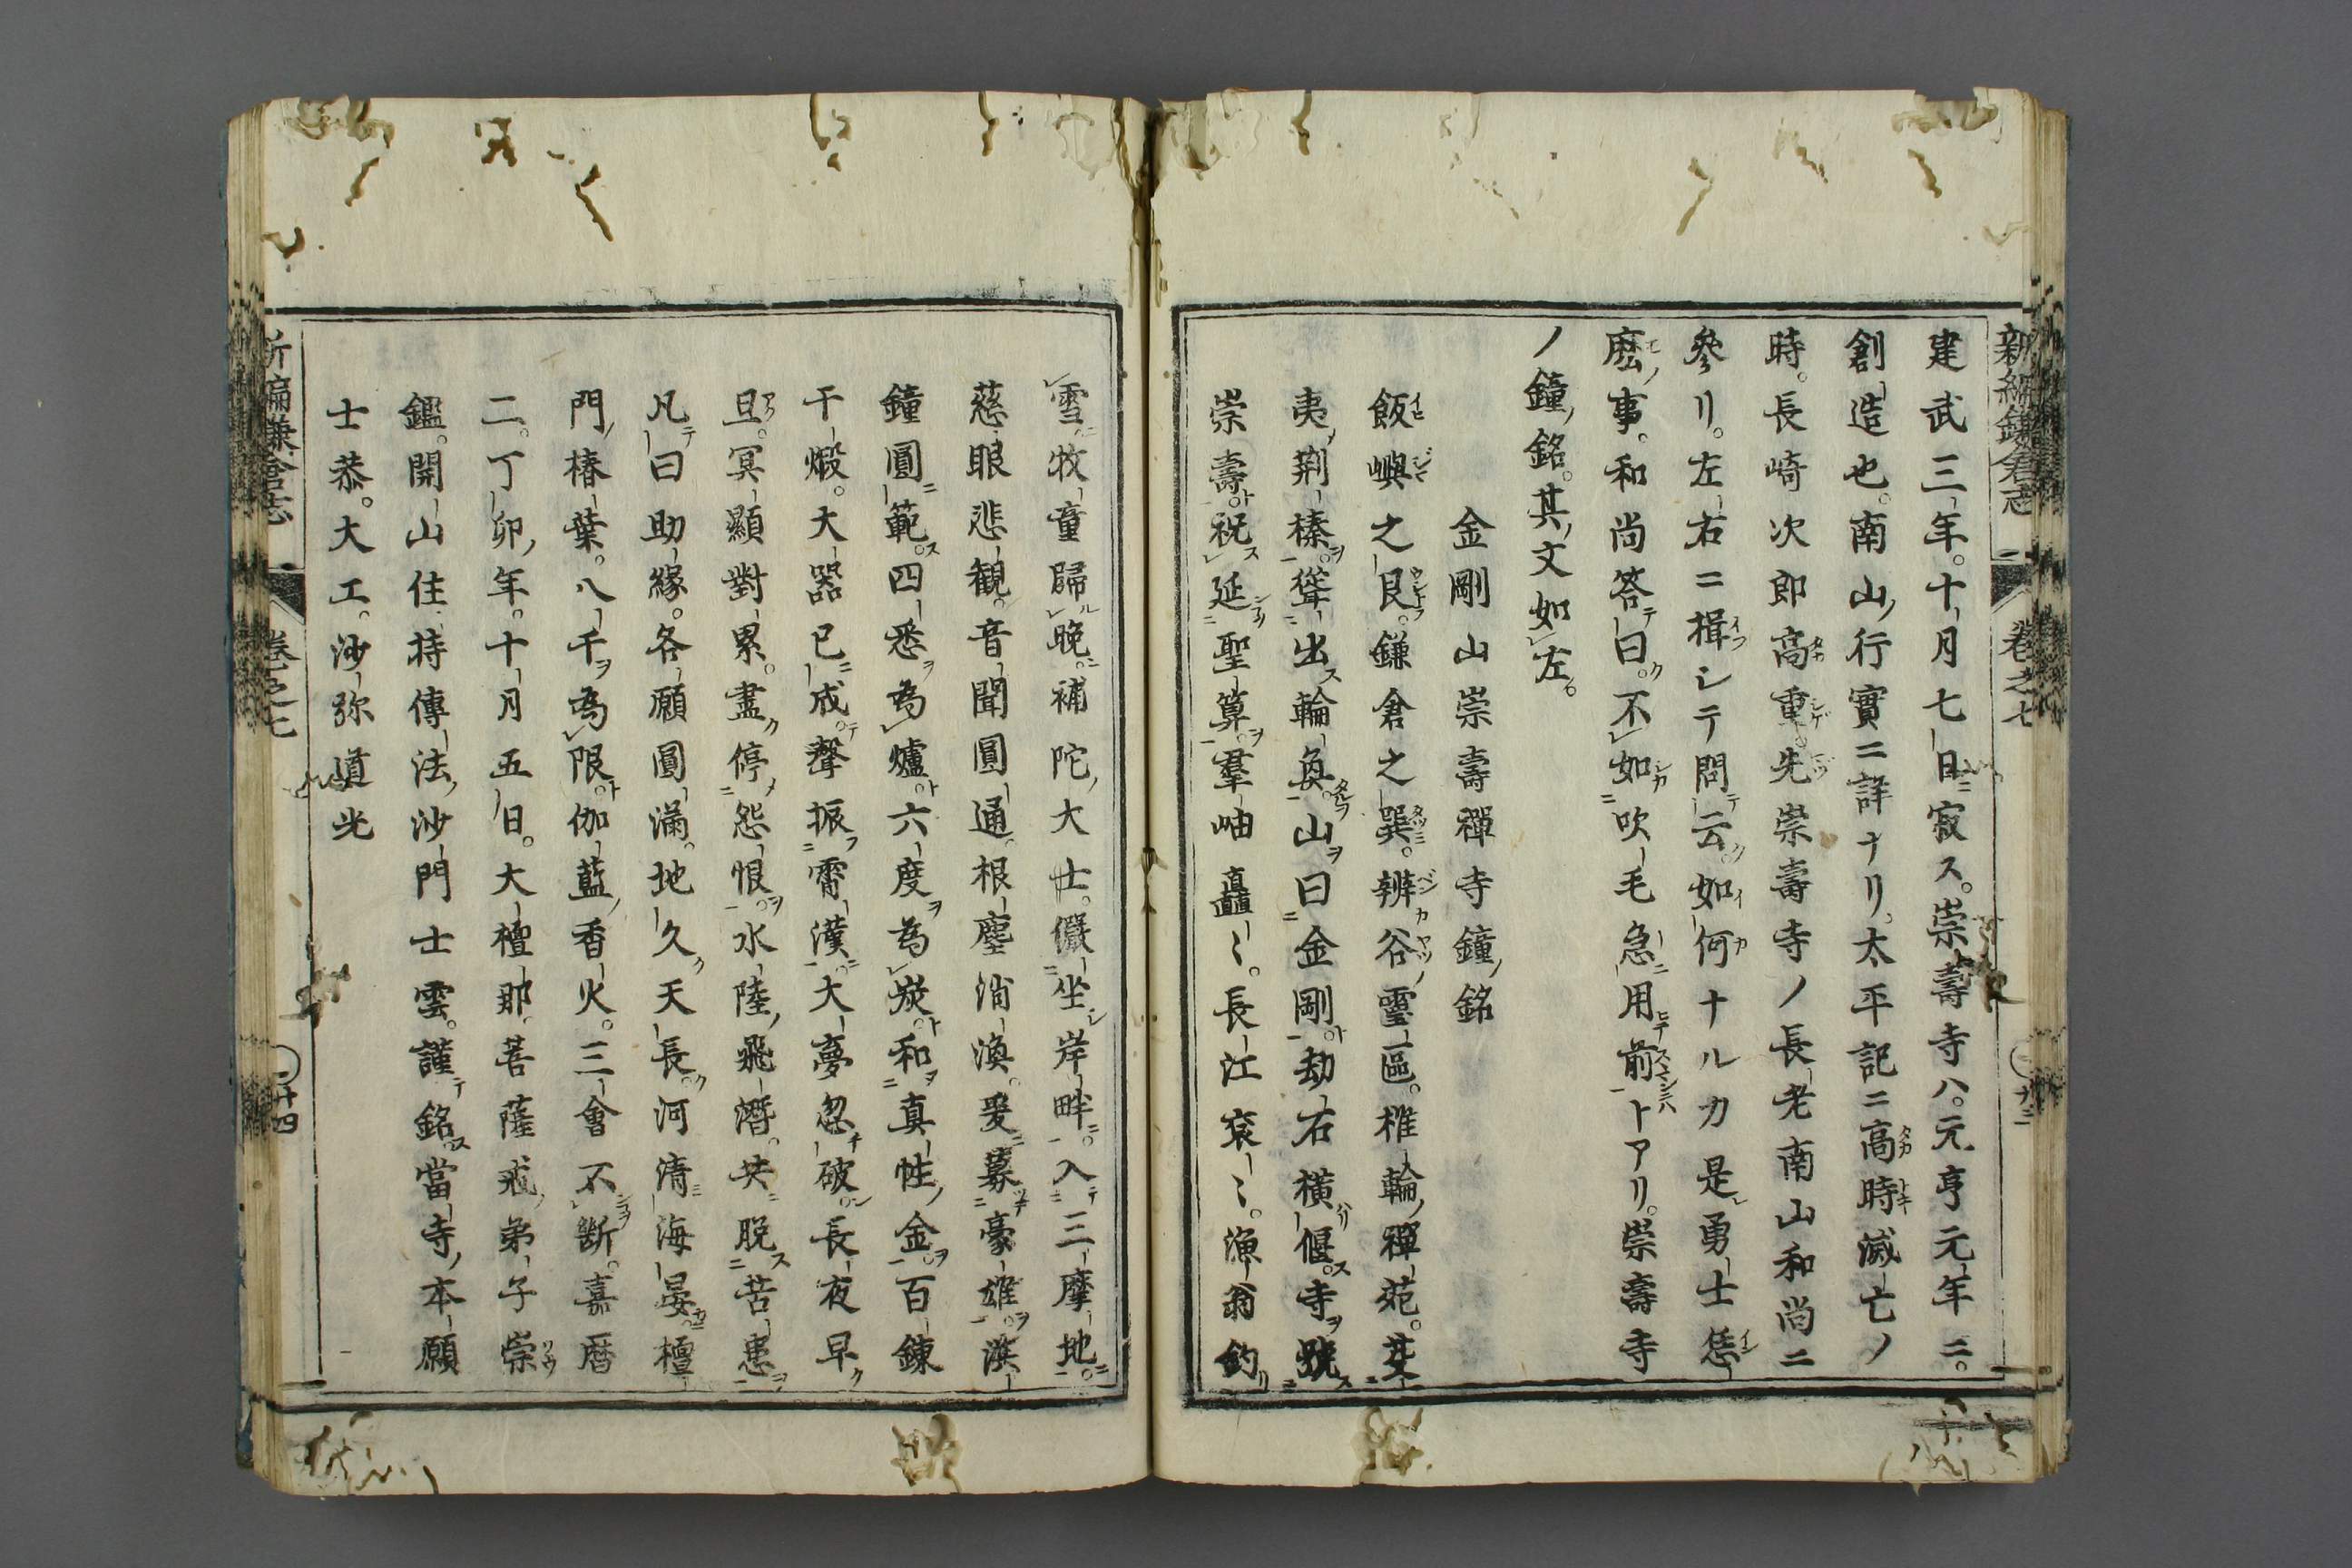 新編鎌倉志
卷之七
建武三年。十月七日ニ寂ス。崇壽寺ハ。元亨元年ニ。
創造也。南山ノ行實ニ詳ナリ。太平記ニ高時滅亡ノ
時。長崎次郎高重。先崇壽寺ノ長老南山和尚ニ
參リ。左右ニ揖シテ問テ云ク。如何ナルカ是勇士恁
麽ノ事。和尚答テ曰ク。不如吹毛急用前トアリ。崇壽寺
ノ鐘ノ銘。其ノ文如左。
金剛山崇壽禪寺鐘ノ銘
飯嶼之艮。鎌倉之巽。辨谷靈區。椎輪禪苑。芟
夷荆榛。聳出輪奐。山曰金剛。劫石橫偃。寺號
崇壽。祝延聖算。羣岫矗〻。長江袞〻。漁翁釣
雪。牧童歸晚。補陀大士。儼坐岸畔。入三摩地。
慈眼悲觀。音聞圓通。根塵消渙。爰募豪雄。
鐘圓範。四悉為爐。六度為炭。和真性金。百鍊
千煅。大器已成。聲振霄漢。大夢忽破。長夜早
旦。冥顯對累。盡停怨恨。水陸飛潛。共脫苦患。
凡曰助緣。各願圓滿。地久天長。河清海晏。檀
門椿葉。八千為限。伽藍香火。三會不斷。嘉暦
二。丁卯年。十月五日。大檀那菩薩戒弟子崇
鑑。開山住持傳法沙門士雲。謹銘。當寺本願
士恭。大工。沙弥道光
新編鎌倉志
卷之七
廿四